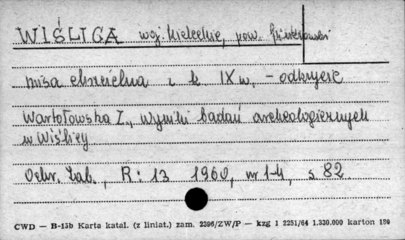 WIŚLICA woj. kieleckie, pow. pińczowski
misa chrzcielna i k IX w, - odkrycie
Wartołowska Z., wyniki badań archeologicznych
w Wiślicy
Ochr. Zab., R: 13 1960, nr 1-4, s 82.
CWD — B-15b Karta katal. (z liniat.) zam. 2396/ZW/P — kzg 1 2251/64 1.330.000 karton 180